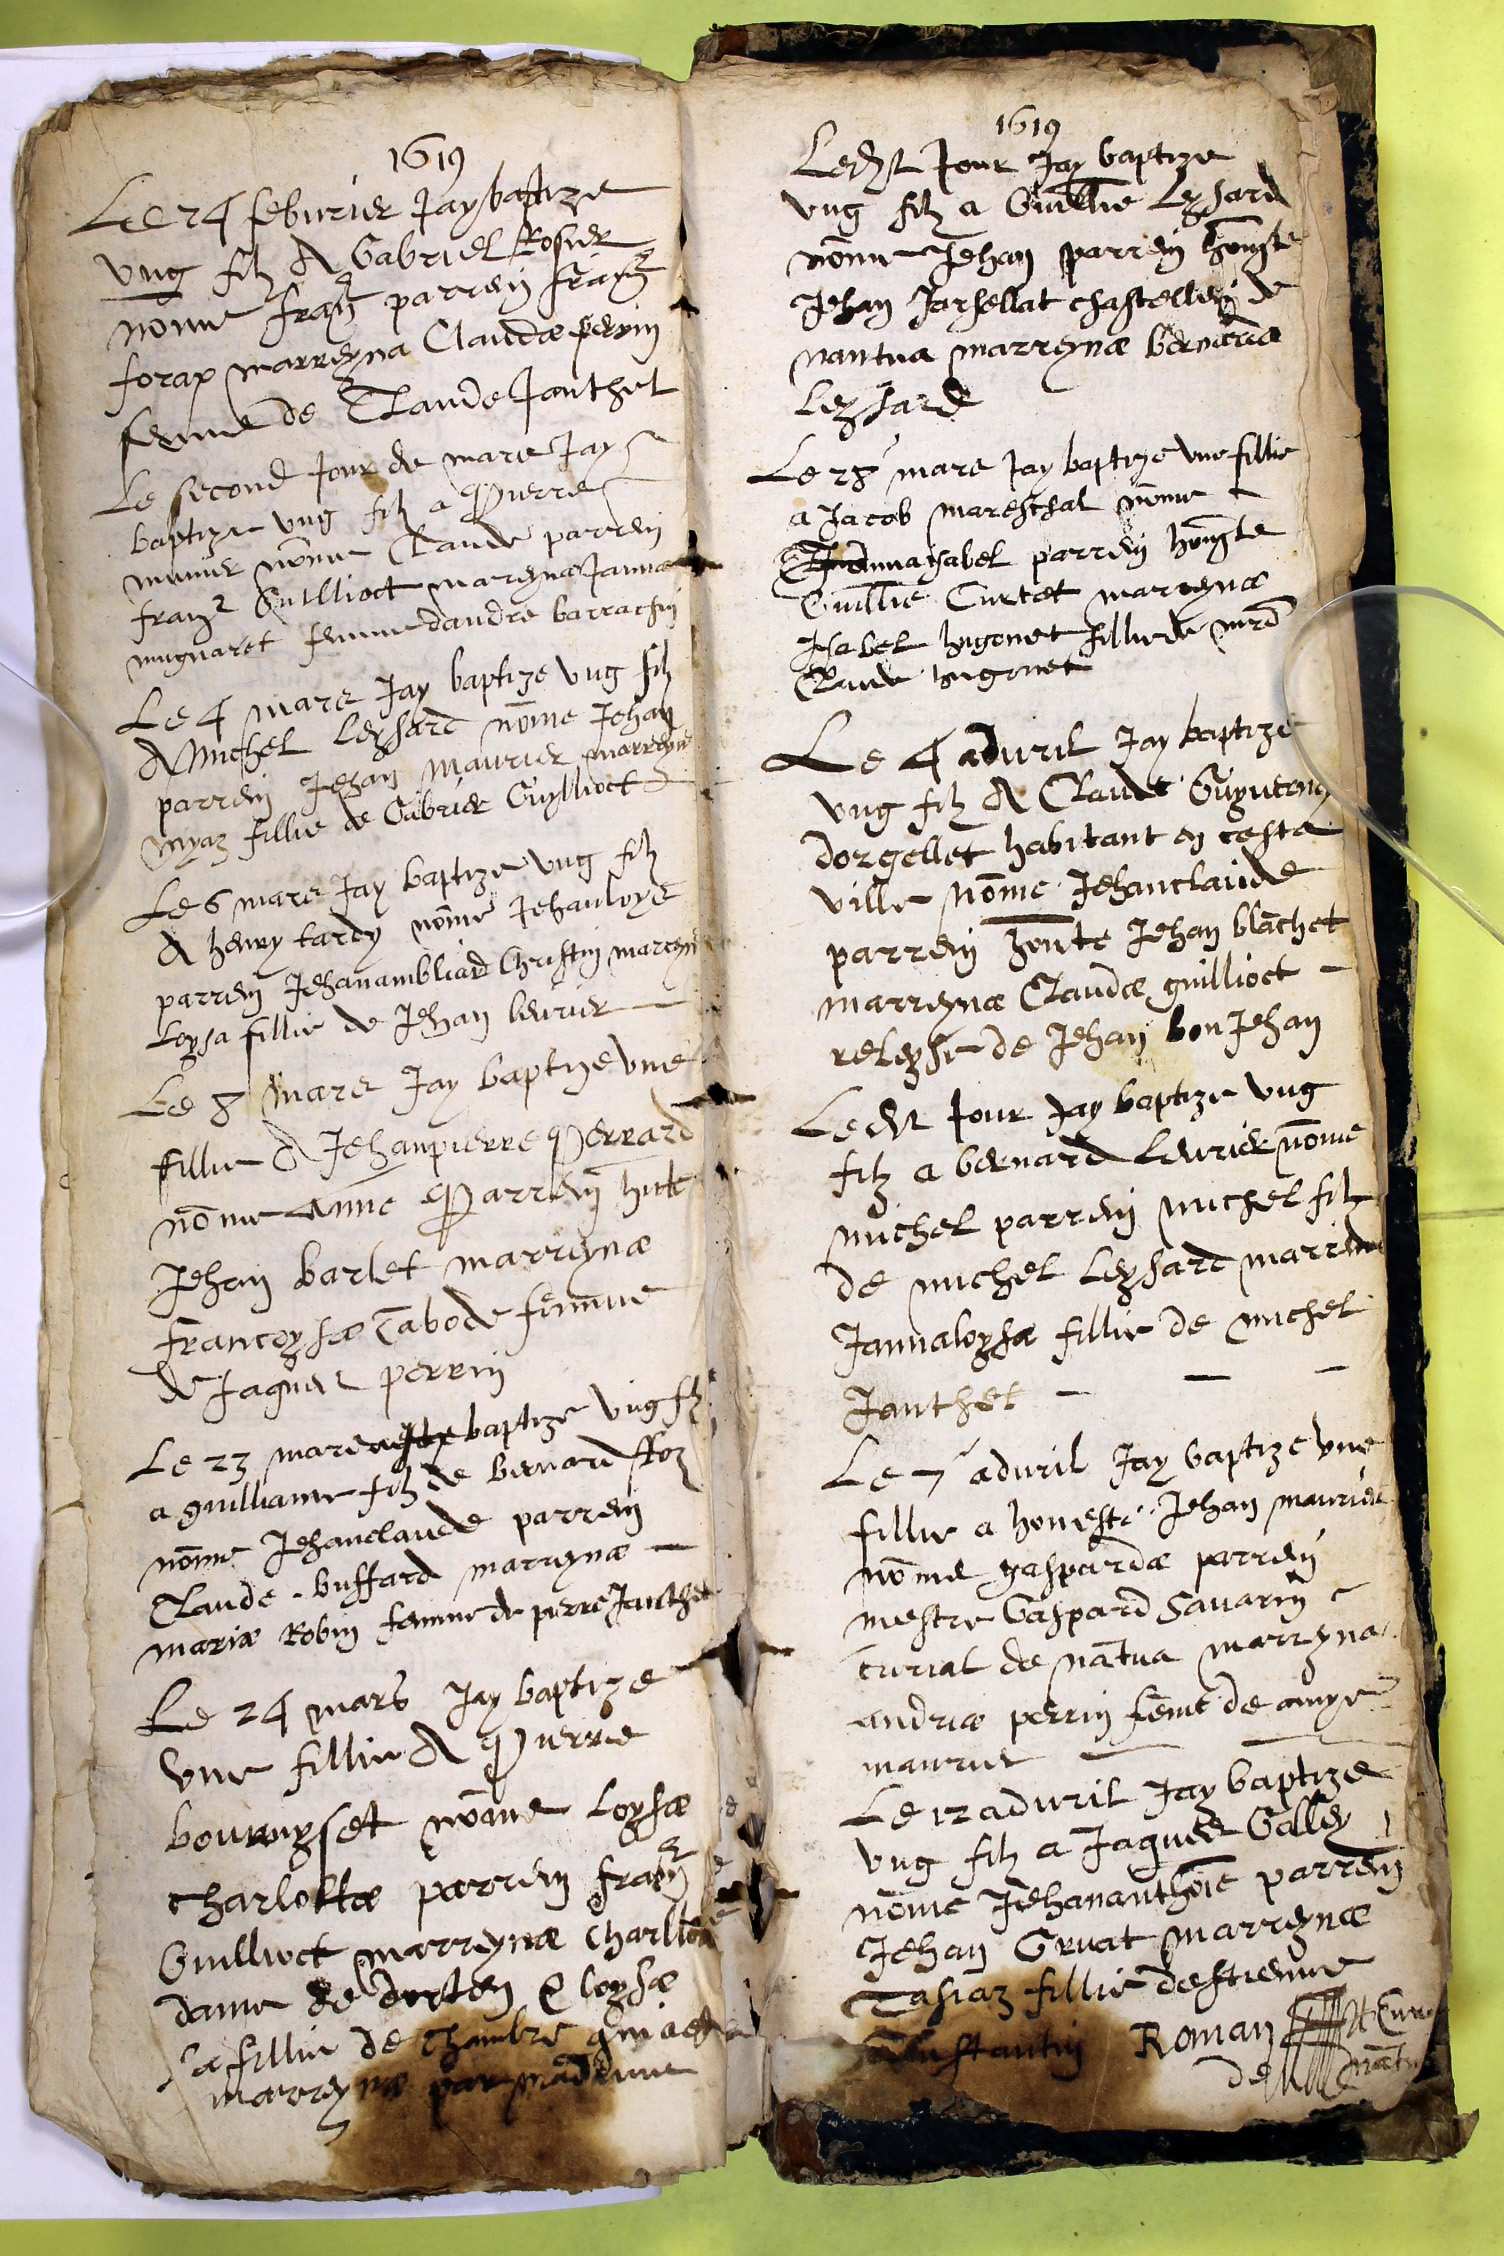 1619
Le 24 feburier Jay baptize
ung filz A Gabriel Rosier
nōme franç parrein franç
forax marreyna Claudæ perrin
femme de Claude Janthet
Le second Jour de mars Jay
baptize ung filz a Pierre
munier nōme Claude parrein
franç Guillioct mareynæ Janna
mugnaret femme dandre barrachin
Le 4 mars Jay baptize ung filz
A Michel leyssard nōme Jehan
parrein Jehan Maurier marreyne
myaz fillie de Gabriel Guyllioct
Le 6 mars Jay baptize ung filz
A henry tardy nōme Jehanloys
parrein Jehanambliard Christin mareyn
Loysa fillie de Jehan levrier
Le 8 mars Jay baptize une
fillie A Jehanpierre Perrard
nōme Anne Parrein
Jehan barlet marreynæ
francoysæ Tabode femme
de Jaques perrin
Le 23 mars baptize ung filz
a guilliame filz de Bernard ffoz
nōme Jehanclaude parrein
Claude buffard marreynæ
mariæ Robin femme de pierre Janthet
Le 24 mars Jay baptize
une fillie A Pierre
nōme Loysæ
charlottæ parrein franç
Guillioct marreynæ Charlotte
dame de dorten & loysæ
sa fillie de chambre
marreynæ par
1619
Ledit Jour Jay baptize
ung filz a Guillie Leyssard
nōme Jehan parrein honeste
Jehan Jarsellat chastellein de
nantua marreynæ bernarda
leyssard
Le 28 mars Jay baptize une fillie
a Jacob mareschal nōme
parrein honeste
Guillie Curtet marreynæ
Isabel hugonet fillie de
Claude hugonet
Le 4 advril Jay baptize
ung filz A Claude
dorgellet habitant en ceste
ville nōme Jehanclaude
parrein honte Jehan blāchet
marreynæ Claudæ guillioct
releysse de Jehan bonJehan
Ledit Jour Jay baptize ung
filz a bernard levrier nōme
michel parrein michel filz
de michel leyssard marreine
Jannaloysæ fillie de michel
Janthet
Le 7 advril Jay baptize une
fillie a honeste Jehan maurier
nōme gaspardæ parrein
mestre Gaspard Savarin
curial de nātua marreyna
andriæ perrin feme de amye
maurier
Le 12 advril Jay baptize
ung filz a Jaques Galley
nōme Jehananthoie parrein
Jehan Gruat marreynæ
Tasiaz fillie destienne
Constantin Roman
de nātua